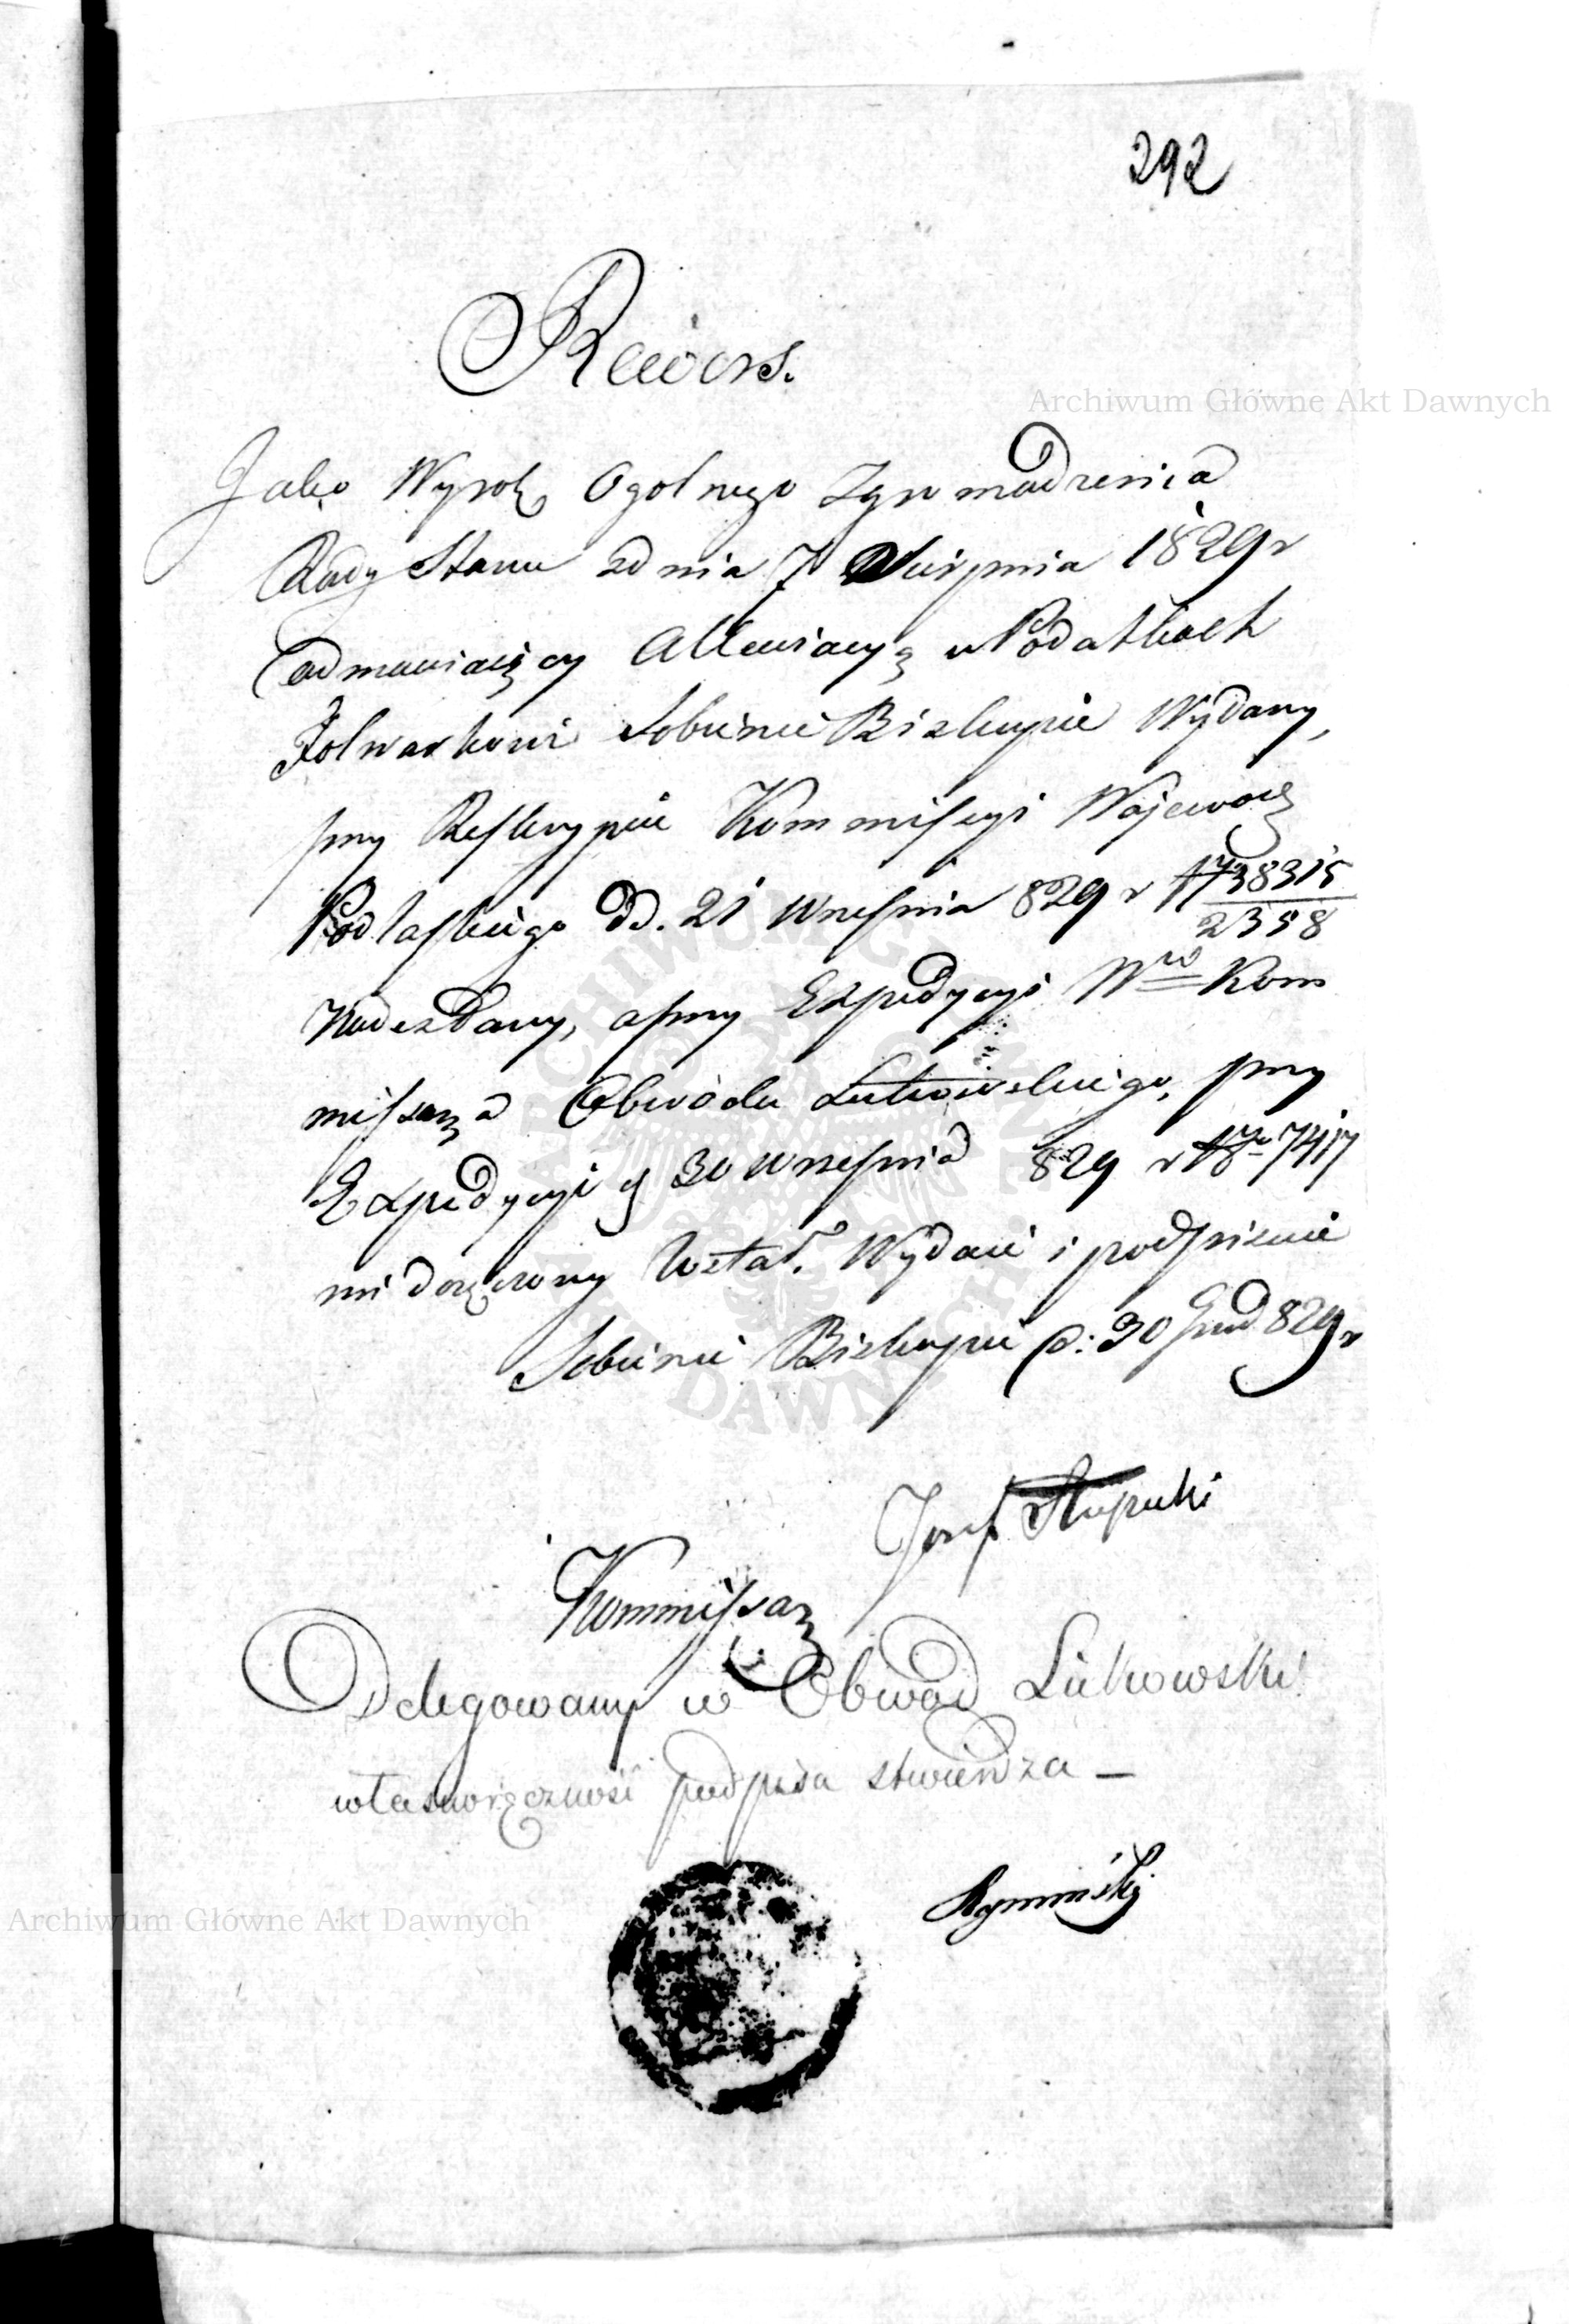 292
Rewers.
Jako Wyrok Ogolnego Zgromadzenia
Rady Stanu z dnia 7 Sierpnia 1829 r
odmawiaiący Allewiacyą w Podatkach
Folwarkowi Sobienie Biskupie Wydany,
przy Reskrypcie Kommissyi Wojewodz
Podlaskiego dd. 21 Wrzesnia 829 r N 38315
2358
Nadesłany, a przy Expedycyi Wgo Kom
missarza Obwodu Łukowskiego, przy
Expedycyi 30 Wrzesnia 829 r Nro 7417
mi doręczony Został. Wydaie i podpisuie
Sobienie Biskupie d: 30 Grud 829 r
Jozef Słupecki
Kommissarz
Delegowany w Obwód Łukowski
własnoręczność podpisu stwierdza —
Archiwum Główne Akt Dawnych
Archiwum Główne Akt Dawnych
ARCHIWUM GŁÓWNE AKT DAWNYCH